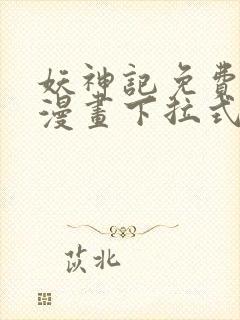 妖神記免費
漫畫下拉式
苡北